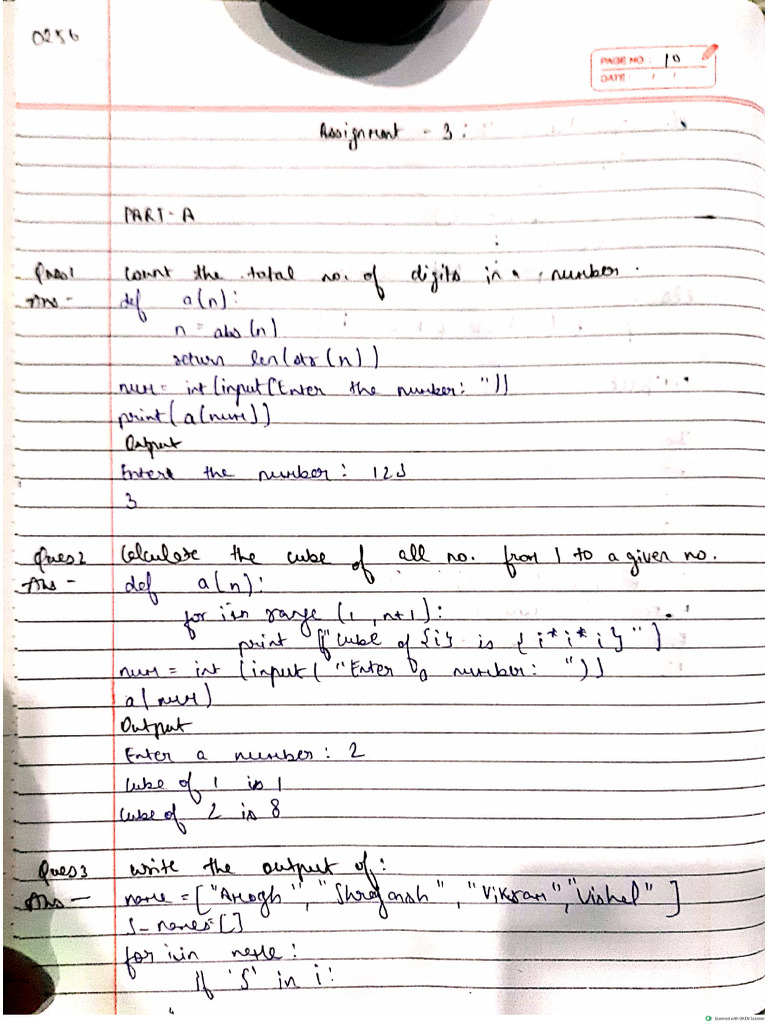 0256
PAGE NO : 10
DATE : / /
Assignment - 3 :
PART-A
Ques1 Count the total no. of digits in a number.
Ans - def a(n):
n = abs(n)
return len(str(n))
num = int(input("Enter the number: "))
print(a(num))
Output
Enter the number : 123
3
Ques2 Calculate the cube of all no. from 1 to a given no.
Ans - def a(n):
for i in range (1, n+1):
print (f"cube of {i} is {i*i*i}")
num = int (input( "Enter a number: "))
a(num)
Output
Enter a number : 2
Cube of 1 is 1
Cube of 2 is 8
Ques3 write the output of:
Ans - name = ["Amogh", "Shreyansh", "Vikram", "Vishal"]
S_names=[]
for i in name :
if 'S' in i:
Scanned with OKEN Scanner